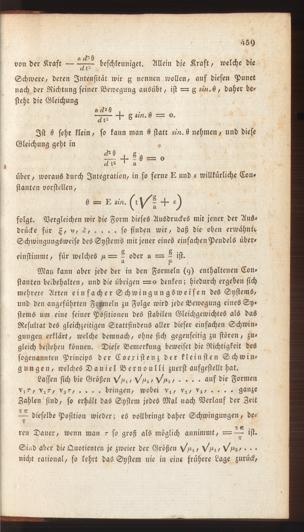 459
von der Kraft — a d²θ / d t² beschleuniget. Allein die Kraft, welche die
Schwere, deren Intensität wir g nennen wollen, auf diesen Punct
nach der Richtung seiner Bewegung ausübt, ist = g sin. θ, daher be-
steht die Gleichung
a d²θ / d t² + g sin. θ = 0.
Ist θ sehr klein, so kann man θ statt sin. θ nehmen, und diese
Gleichung geht in
d²θ / d t² + g/a θ = 0
über, woraus durch Integration, in so ferne E und ε willkürliche Con-
stanten vorstellen,
θ = E sin. (t √ g/a + ε)
folgt. Vergleichen wir die Form dieses Ausdruckes mit jener der Aus-
drücke für ξ, υ, ζ, . . . . so finden wir, daß die oben erwähnte
Schwingungsweise des Systems mit jener eines einfachen Pendels über-
einstimmt, für welches μ = g/a oder a = g/μ ist.
Man kann aber jede der in den Formeln (9) enthaltenen Con-
stanten beibehalten, und die übrigen = 0 denken; hiedurch ergeben sich
mehrere Arten einfacher Schwingungsweisen des Systems,
und den angeführten Formeln zu Folge wird jede Bewegung eines Sy-
stems um eine seiner Positionen des stabilen Gleichgewichtes als das
Resultat des gleichzeitigen Stattfindens aller dieser einfachen Schwin-
gungen erklärt, welche demnach, ohne sich gegenseitig zu stören, zu-
gleich bestehen können. Diese Bemerkung beweiset die Richtigkeit des
sogenannten Princips der Coexistenz der kleinsten Schwin-
gungen, welches Daniel Bernoulli zuerst aufgestellt hat.
Lassen sich die Größen √μ₁, √μ₂, . . . . auf die Formen
ν₁τ, ν₂τ, ν₃τ, . . . . bringen, wobei ν₁, ν₂, ν₃, . . . . ganze
Zahlen sind, so erhält das System jedes Mal nach Verlauf der Zeit
2π/τ dieselbe Position wieder; es vollbringt daher Schwingungen, de-
ren Dauer, wenn man τ so groß als möglich annimmt, = 2π/τ ist.
Sind aber die Quotienten je zweier der Größen √μ₁, √μ₂, √μ₃, . . .
nicht rational, so kehrt das System nie in eine frühere Lage zurück,